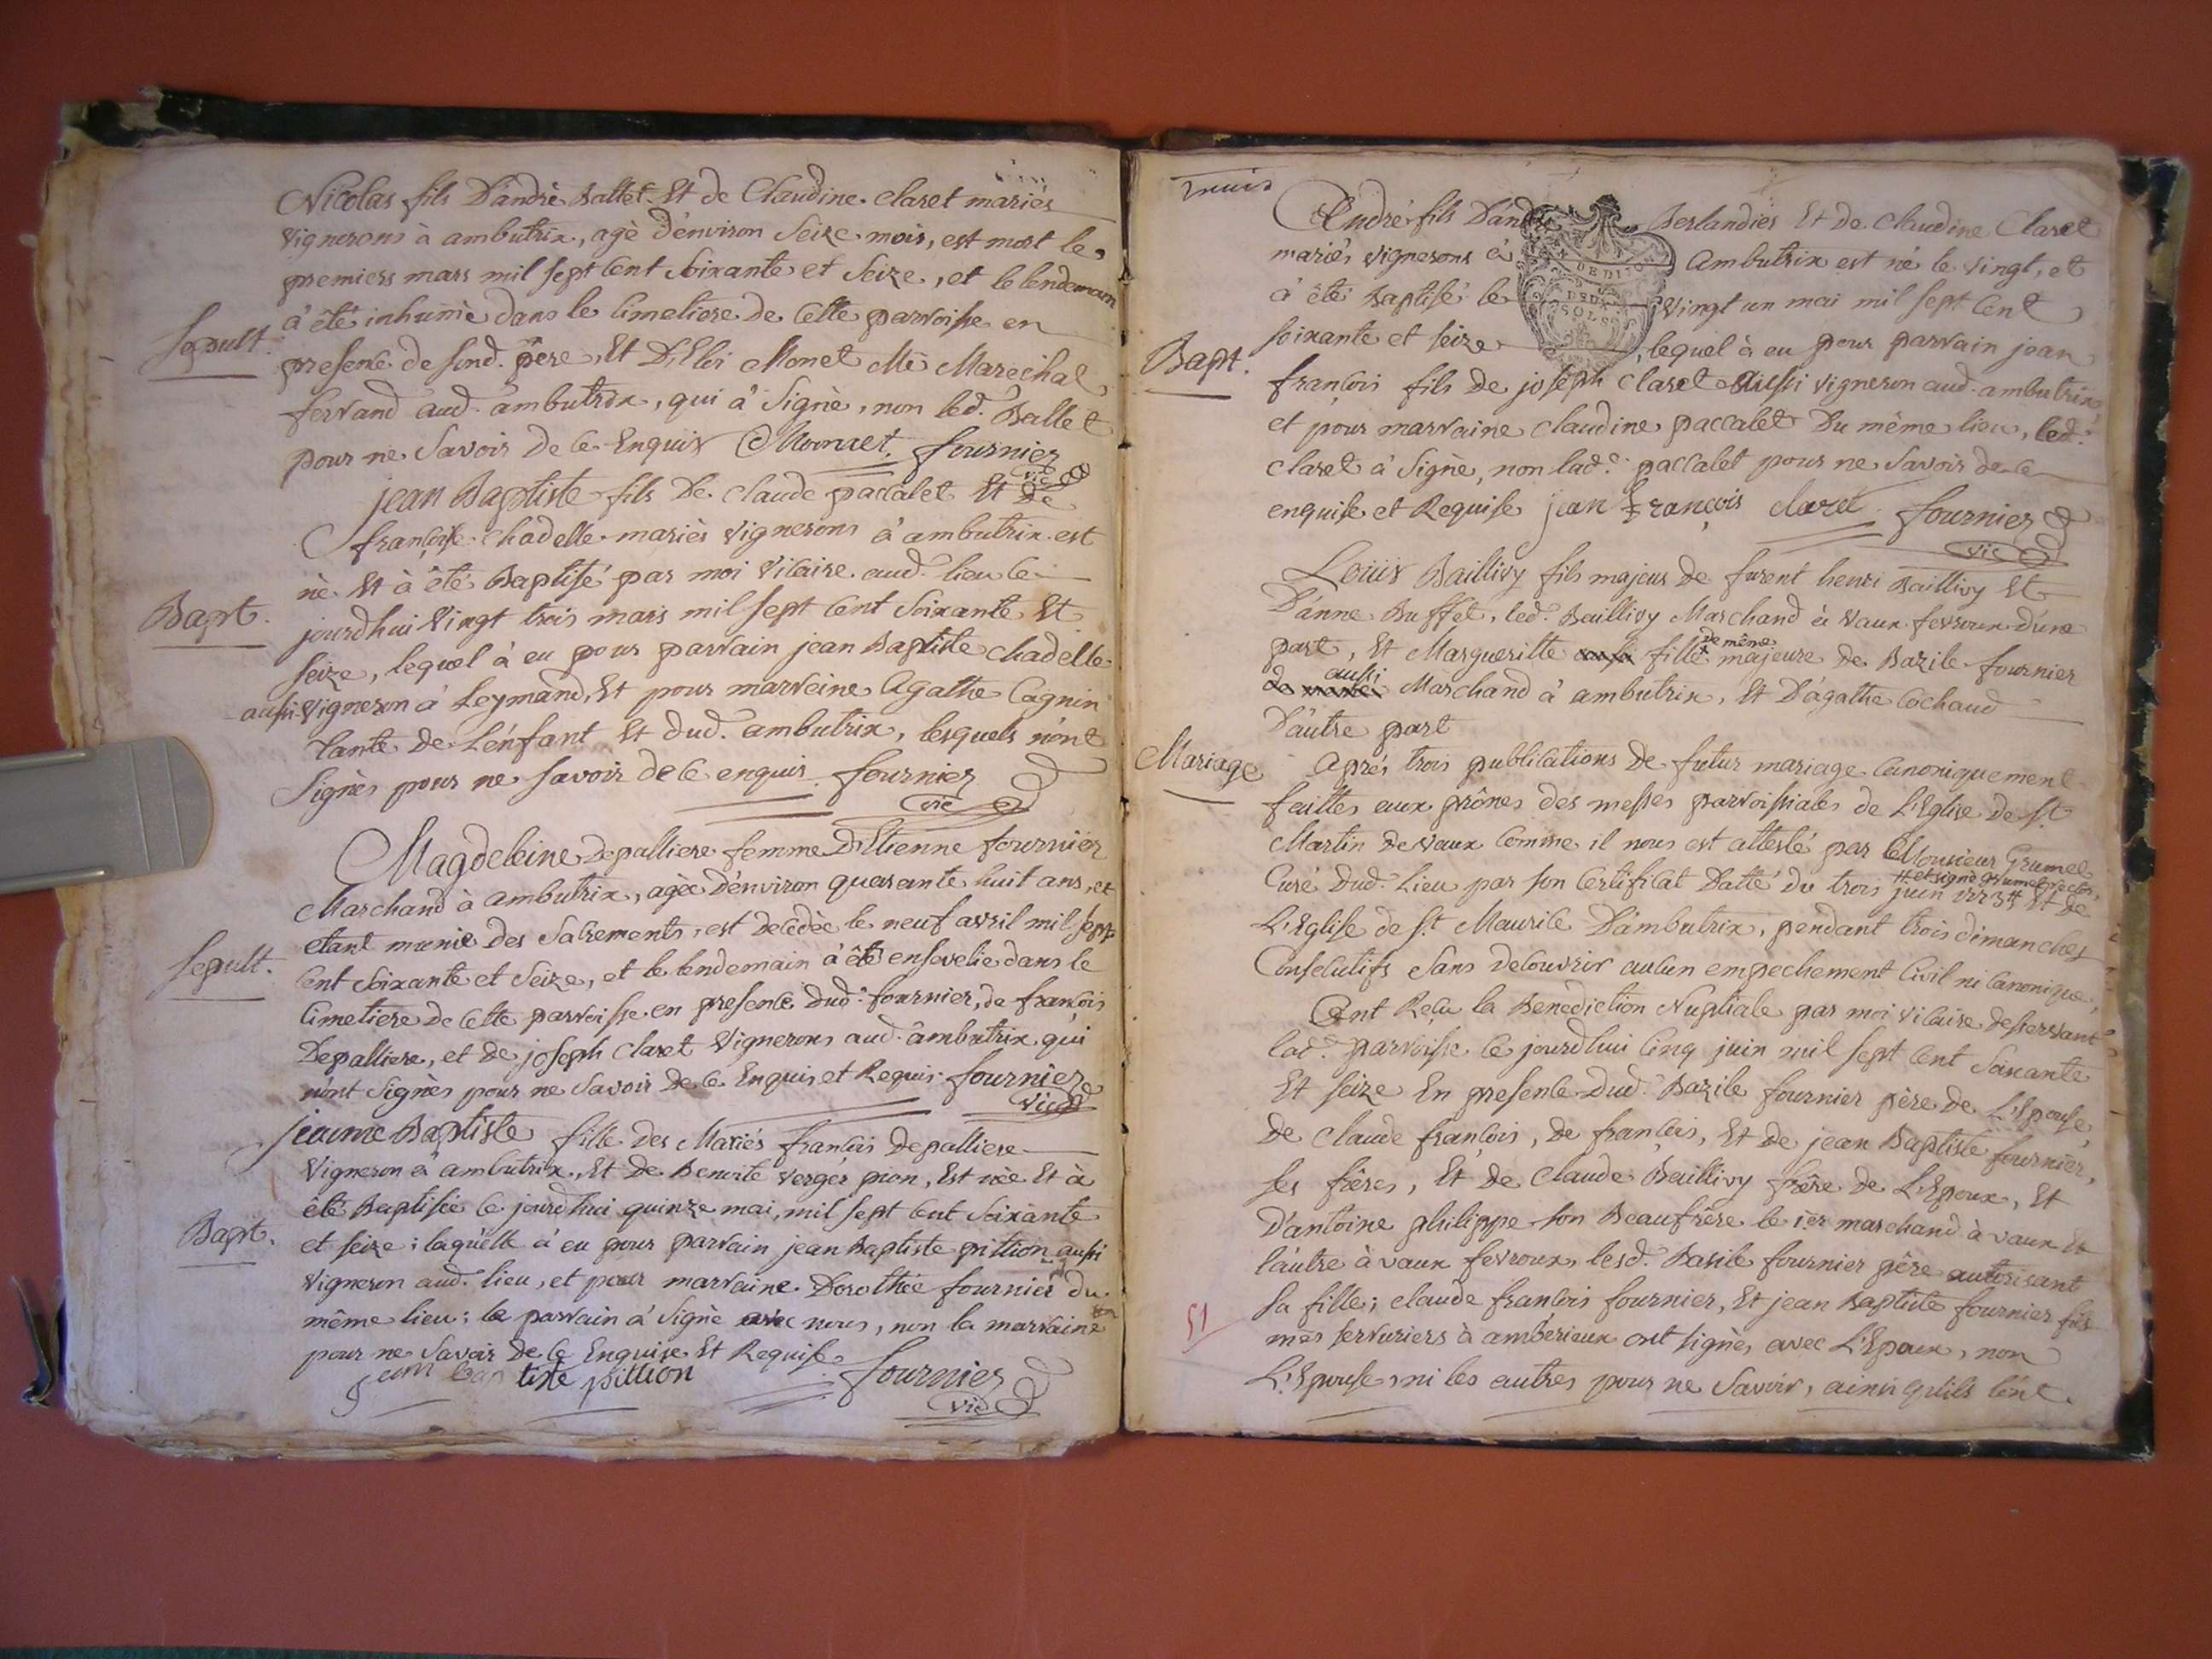 Nicolas fils D'andrè Ballet Et de Claudine Claret mariés
vignerons à ambutrix, agè d'environ Seize mois, est mort le
premiers mars mil sept Cent Soixante et Seize, et le lendemain
Sepult.
à été inhumè dans le Cimetiere de Cette parroisse en
presence de sond. père, Et D'Eloi Monet Me Marechal
ferrand aud. ambutrix, qui à Signè, non led. Ballet
pour ne Savoir de Ce Enquis Monnet, fournier
vic
jean Baptiste fils De Claude paccalet Et de
françoise Chadelle mariès vignerons à ambutrix est
nè Et à été Baptisé par moi Vicaire aud. lieu Ce
Bapt.
jourdhui Vingt trois mars mil sept Cent Soixante Et
Seize, lequel à eu pour parrain jean Baptiste Chadelle
aussi Vigneron à Leymand, Et pour marreine Agathe Cagnin
tante de L'énfant Et dud. ambutrix, lesquels n'ónt
Signès pour ne Savoir de Ce enquis fournier
vic
Magdeleine Depalliere femme D'Etienne fournier
Marchand à ambutrix, agèe d'énviron quarante huit ans, et
etant munie des Sacrements, est Decèdèe le neuf avril mil sept
Sepult.
Cent Soixante et Seize, et le lendemain à été ensevelie dans le
Cimetiere de Cette parroisse en presence Dud. fournier, de françois
Depalliere, et de joseph Claret Vignerons aud. ambutrix qui
n'ont Signès pour ne Savoir de Ce Enquis et Requis fournier
vic
jeanne Baptiste fille des Mariés françois Depalliere
Vigneron à ambutrix, Et de Benoite Verger pion, Est nèe Et à
été Baptisèe Ce jourdhui quinze mai, mil sept Cent Soixante
Bapt.
et seize; laquèlle à eu pour parrain jean Baptiste pittion aussi
Vigneron aud. lieu, et pour marraine Dorothèe fournier du
même lieu; le parrain à Signè avec nous, non la marraine
pour ne Savoir De Ce Enquise Et Requise
jean baptiste pittion fournier
vic
André fils D'andré Berlandier Et de Claudine Claret
mariés vignerons à Ambutrix est né le vingt, et
DEUX
SOLS
à été Baptisé le vingt un mai mil sept Cent
soixante et seize, lequel à eu pour parrain jean
Bapt.
françois fils de joséph Claret Aussi vigneron aud. ambutrix
et pour marraine Claudine paccalet Du même lieu, led.
Claret à Signè, non lad.e paccalet pour ne Savoir de Ce
enquise et Requise jean François claret fournier
vic
Loüis Baillivy fils majeur de furent henri Baillivy Et
D'ánne Buffet, led. Baillivy Marchand à Vaux fevroux d'úne
part, Et Margueritte aussi fille de même majeure de Bazile fournier
aussi
de même Marchand à ambutrix, Et D'ágathe Cochaud
D'áutre part
Mariage
Aprés trois publications De futur mariage Canoniquement
faittes aux prônes des messes parroissiales de L'Eglise De St
Martin de vaux Comme il nous est attesté par Monsieur Grumel
Curé Dud. Lieu par son Certificat Datté du trois juin 1773# Et de
# et signé grumel
L'Eglise de St. Maurice D'ámbutrix, pendant trois dimanches
Consecutifs Sans decouvrir aucun empechement Civil ni Canonique,
Ont Reçu la Benediction Nuptiale par moi vicaire desservant
lad.e parroisse Ce jourdhui Cinq juin mil sept Cent Soixante
Et seize En presence Dud. Bazile fournier père de L'Epouse,
De Claude françois, de françois, Et de jean Baptiste fournier,
ses frères, Et de Claude Baillivy frère de L'Epoux, Et
D'antoine philippe son Beaufrère le 1er marchand à vaux Et
l'áutre à vaux fevroux, lesd. Basile fournier père autorisant
sa fille; claude françois fournier, Et jean Baptiste fournier fils
51
mes serruriers à amberieux ont signés avec L'Epoux, non
L'Epouse, ni les autres pour ne Savoir, ainsi qu'ils l'ónt